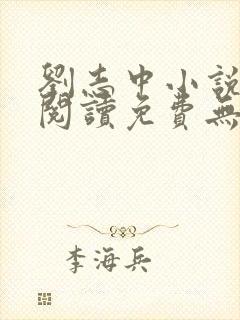 劉志中小說
閱讀免費無
李海兵